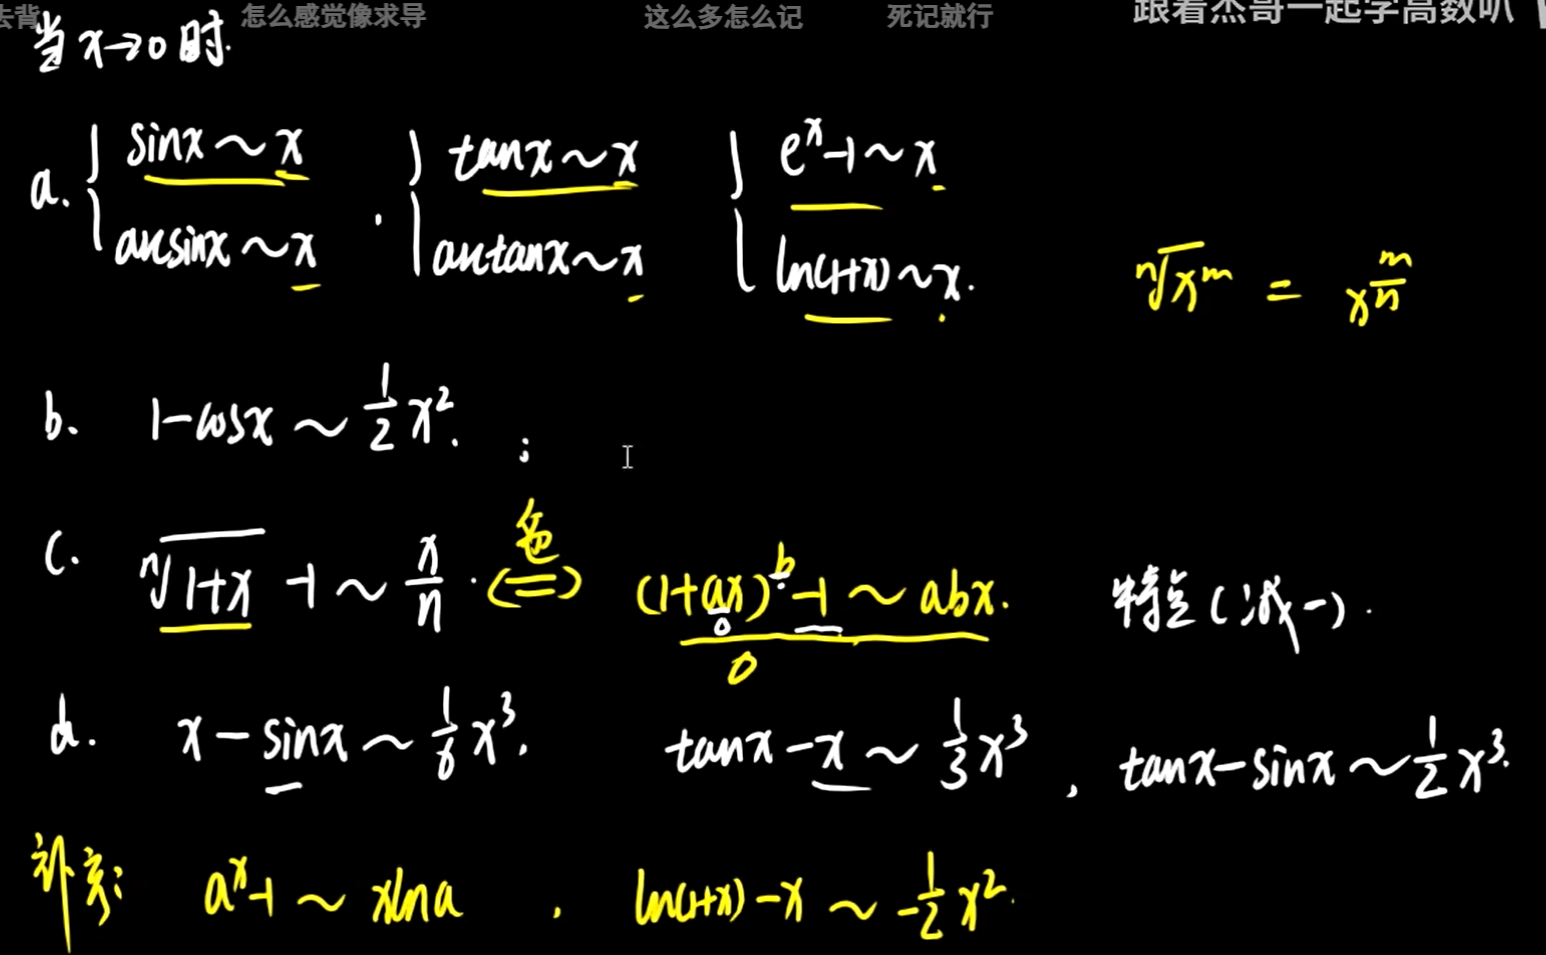 去背 怎么感觉像求导 这么多怎么记 死记就行 跟着杰哥一起学高数叭
当 x→0 时.
a. { sinx ~ x . { tanx ~ x { eˣ-1 ~ x
arcsinx ~ x arctanx ~ x ln(1+x) ~ x.
ⁿ√xᵐ = x^(m/n)
b. 1-cosx ~ 1/2 x². ;
c. ⁿ√(1+x) -1 ~ x/n . (=) (1+ax)ᵇ-1 ~ abx. 特点(减一).
0 0
d. x-sinx ~ 1/6 x³. tanx-x ~ 1/3 x³ , tanx-sinx ~ 1/2 x³.
补充: aˣ-1 ~ xlna , ln(1+x)-x ~ -1/2 x².